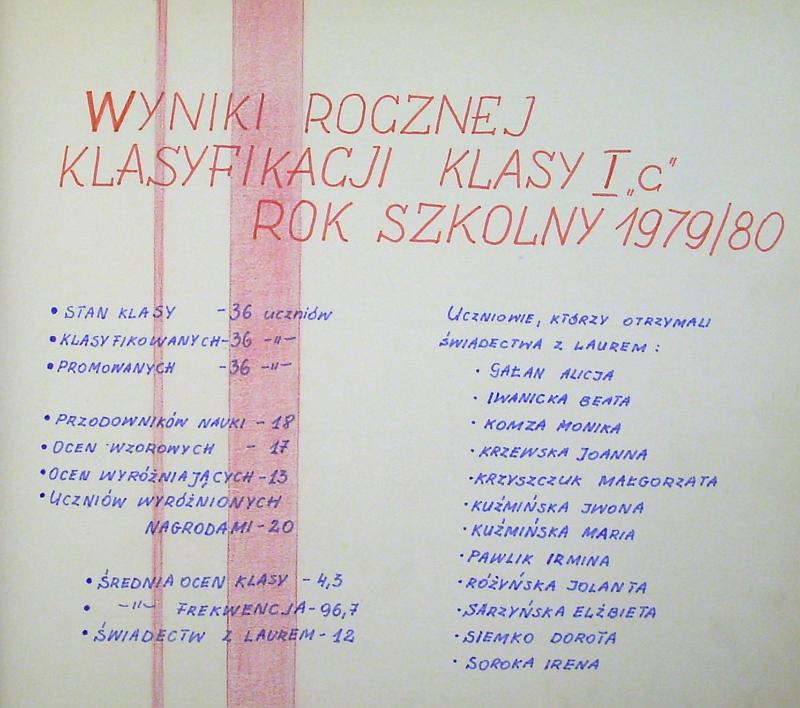 WYNIKI ROCZNEJ
KLASYFIKACJI KLASY I „C"
ROK SZKOLNY 1979/80
• STAN KLASY - 36 uczniów
• KLASYFIKOWANYCH - 36 -"-
• PROMOWANYCH - 36 -"-
• PRZODOWNIKÓW NAUKI - 18
• OCEN WZOROWYCH - 17
• OCEN WYRÓŻNIAJĄCYCH - 13
• UCZNIÓW WYRÓŻNIONYCH
NAGRODAMI - 20
• ŚREDNIA OCEN KLASY - 4,3
• -"- FREKWENCJA - 96,7
• ŚWIADECTW Z LAUREM - 12
UCZNIOWIE, KTÓRZY OTRZYMALI
ŚWIADECTWA Z LAUREM :
• GAŁAN ALICJA
• IWANICKA BEATA
• KOMZA MONIKA
• KRZEWSKA JOANNA
• KRZYSZCZUK MAŁGORZATA
• KUŹMIŃSKA IWONA
• KUŹMIŃSKA MARIA
• PAWLIK IRMINA
• RÓŻYŃSKA JOLANTA
• SARZYŃSKA ELŻBIETA
• SIEMKO DOROTA
• SOROKA IRENA